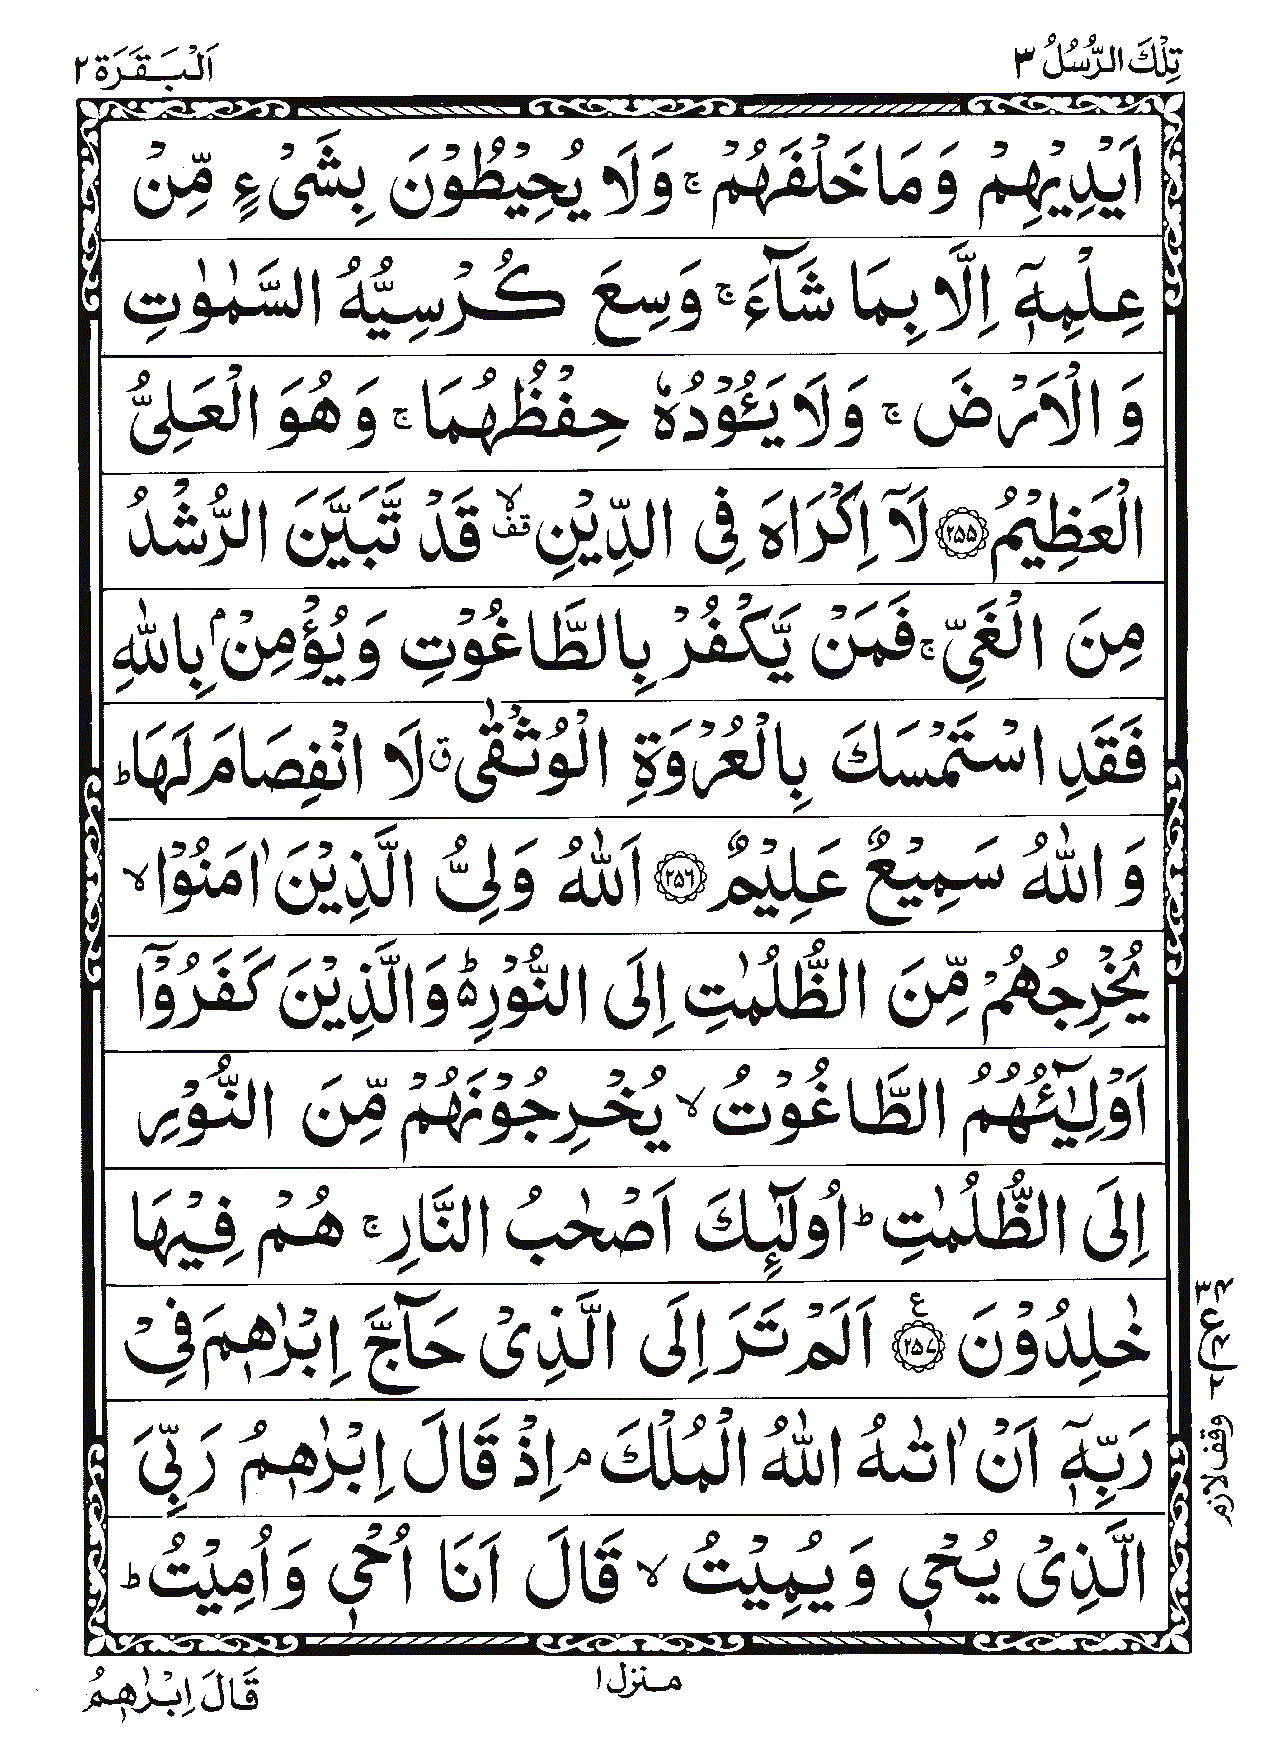 تِلْكَ الرُّسُلُ ٣
اَلْبَقَرَة ٢
اَيْدِيْهِمْ وَمَا خَلْفَهُمْ ۚ وَلَا يُحِيْطُوْنَ بِشَیْءٍ مِّنْ
عِلْمِهٖۤ اِلَّا بِمَا شَآءَ ۚ وَسِعَ كُرْسِيُّهُ السَّمٰوٰتِ
وَ الْاَرْضَ ۚ وَلَا يَـُٔوْدُهٗ حِفْظُهُمَا ۚ وَ هُوَ الْعَلِیُّ
الْعَظِيْمُ ﴿۲۵۵﴾ لَاۤ اِكْرَاهَ فِی الدِّيْنِ ۙقف قَدْ تَّبَيَّنَ الرُّشْدُ
مِنَ الْغَیِّ ۚ فَمَنْ يَّكْفُرْ بِالطَّاغُوْتِ وَيُؤْمِنْۢ بِاللّٰهِ
فَقَدِ اسْتَمْسَكَ بِالْعُرْوَةِ الْوُثْقٰی ق لَا انْفِصَامَ لَهَا ؕ
وَ اللّٰهُ سَمِيْعٌ عَلِيْمٌ ﴿۲۵۶﴾ اَللّٰهُ وَلِیُّ الَّذِيْنَ اٰمَنُوْا ۙ
يُخْرِجُهُمْ مِّنَ الظُّلُمٰتِ اِلَی النُّوْرِ ؕ۵ وَالَّذِيْنَ كَفَرُوْۤا
اَوْلِيٰٓـُٔهُمُ الطَّاغُوْتُ ۙ يُخْرِجُوْنَهُمْ مِّنَ النُّوْرِ
اِلَی الظُّلُمٰتِ ؕ اُولٰٓئِكَ اَصْحٰبُ النَّارِ ۚ هُمْ فِيْهَا
خٰلِدُوْنَ ﴿۲۵۷﴾ع اَلَمْ تَرَ اِلَی الَّذِیْ حَآجَّ اِبْرٰهٖمَ فِیْ
رَبِّهٖۤ اَنْ اٰتٰىهُ اللّٰهُ الْمُلْكَ ۘ اِذْ قَالَ اِبْرٰهٖمُ رَبِّیَ
الَّذِیْ يُحْیٖ وَ يُمِيْتُ ۙ قَالَ اَنَا اُحْیٖ وَ اُمِيْتُ ؕ
وقف لازم
منزل ١
قَالَ اِبْرٰهٖمُ